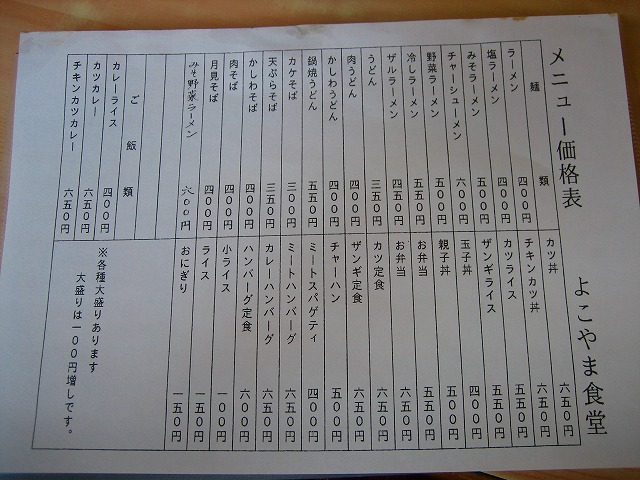 メニュー価格表　よこやま食堂
麺類
ラーメン 四００円
塩ラーメン 四００円
みそラーメン 五００円
チャーシューメン 六００円
野菜ラーメン 五００円
冷しラーメン 五五０円
ザルラーメン 四五０円
うどん 三五０円
肉うどん 四００円
かしわうどん 四００円
鍋焼うどん 五五０円
カケそば 三００円
天ぷらそば 三五０円
かしわそば 四００円
肉そば 四００円
月見そば 四００円
みそ野菜ラーメン 六００円
ご飯類
カレーライス 四００円
カツカレー 六五０円
チキンカツカレー 六五０円
カツ丼 六五０円
チキンカツ丼 六五０円
カツライス 六五０円
ザンギライス 六五０円
玉子丼 四００円
親子丼 五００円
お弁当 五五０円
お弁当 六五０円
カツ定食 六五０円
ザンギ定食 六五０円
チャーハン 五００円
ミートスパゲティ 四００円
ミートハンバーグ 六五０円
カレーハンバーグ 六五０円
ハンバーグ定食 六００円
小ライス 一００円
ライス 一五０円
おにぎり 一五０円
※各種大盛りあります
大盛りは一００円増しです。